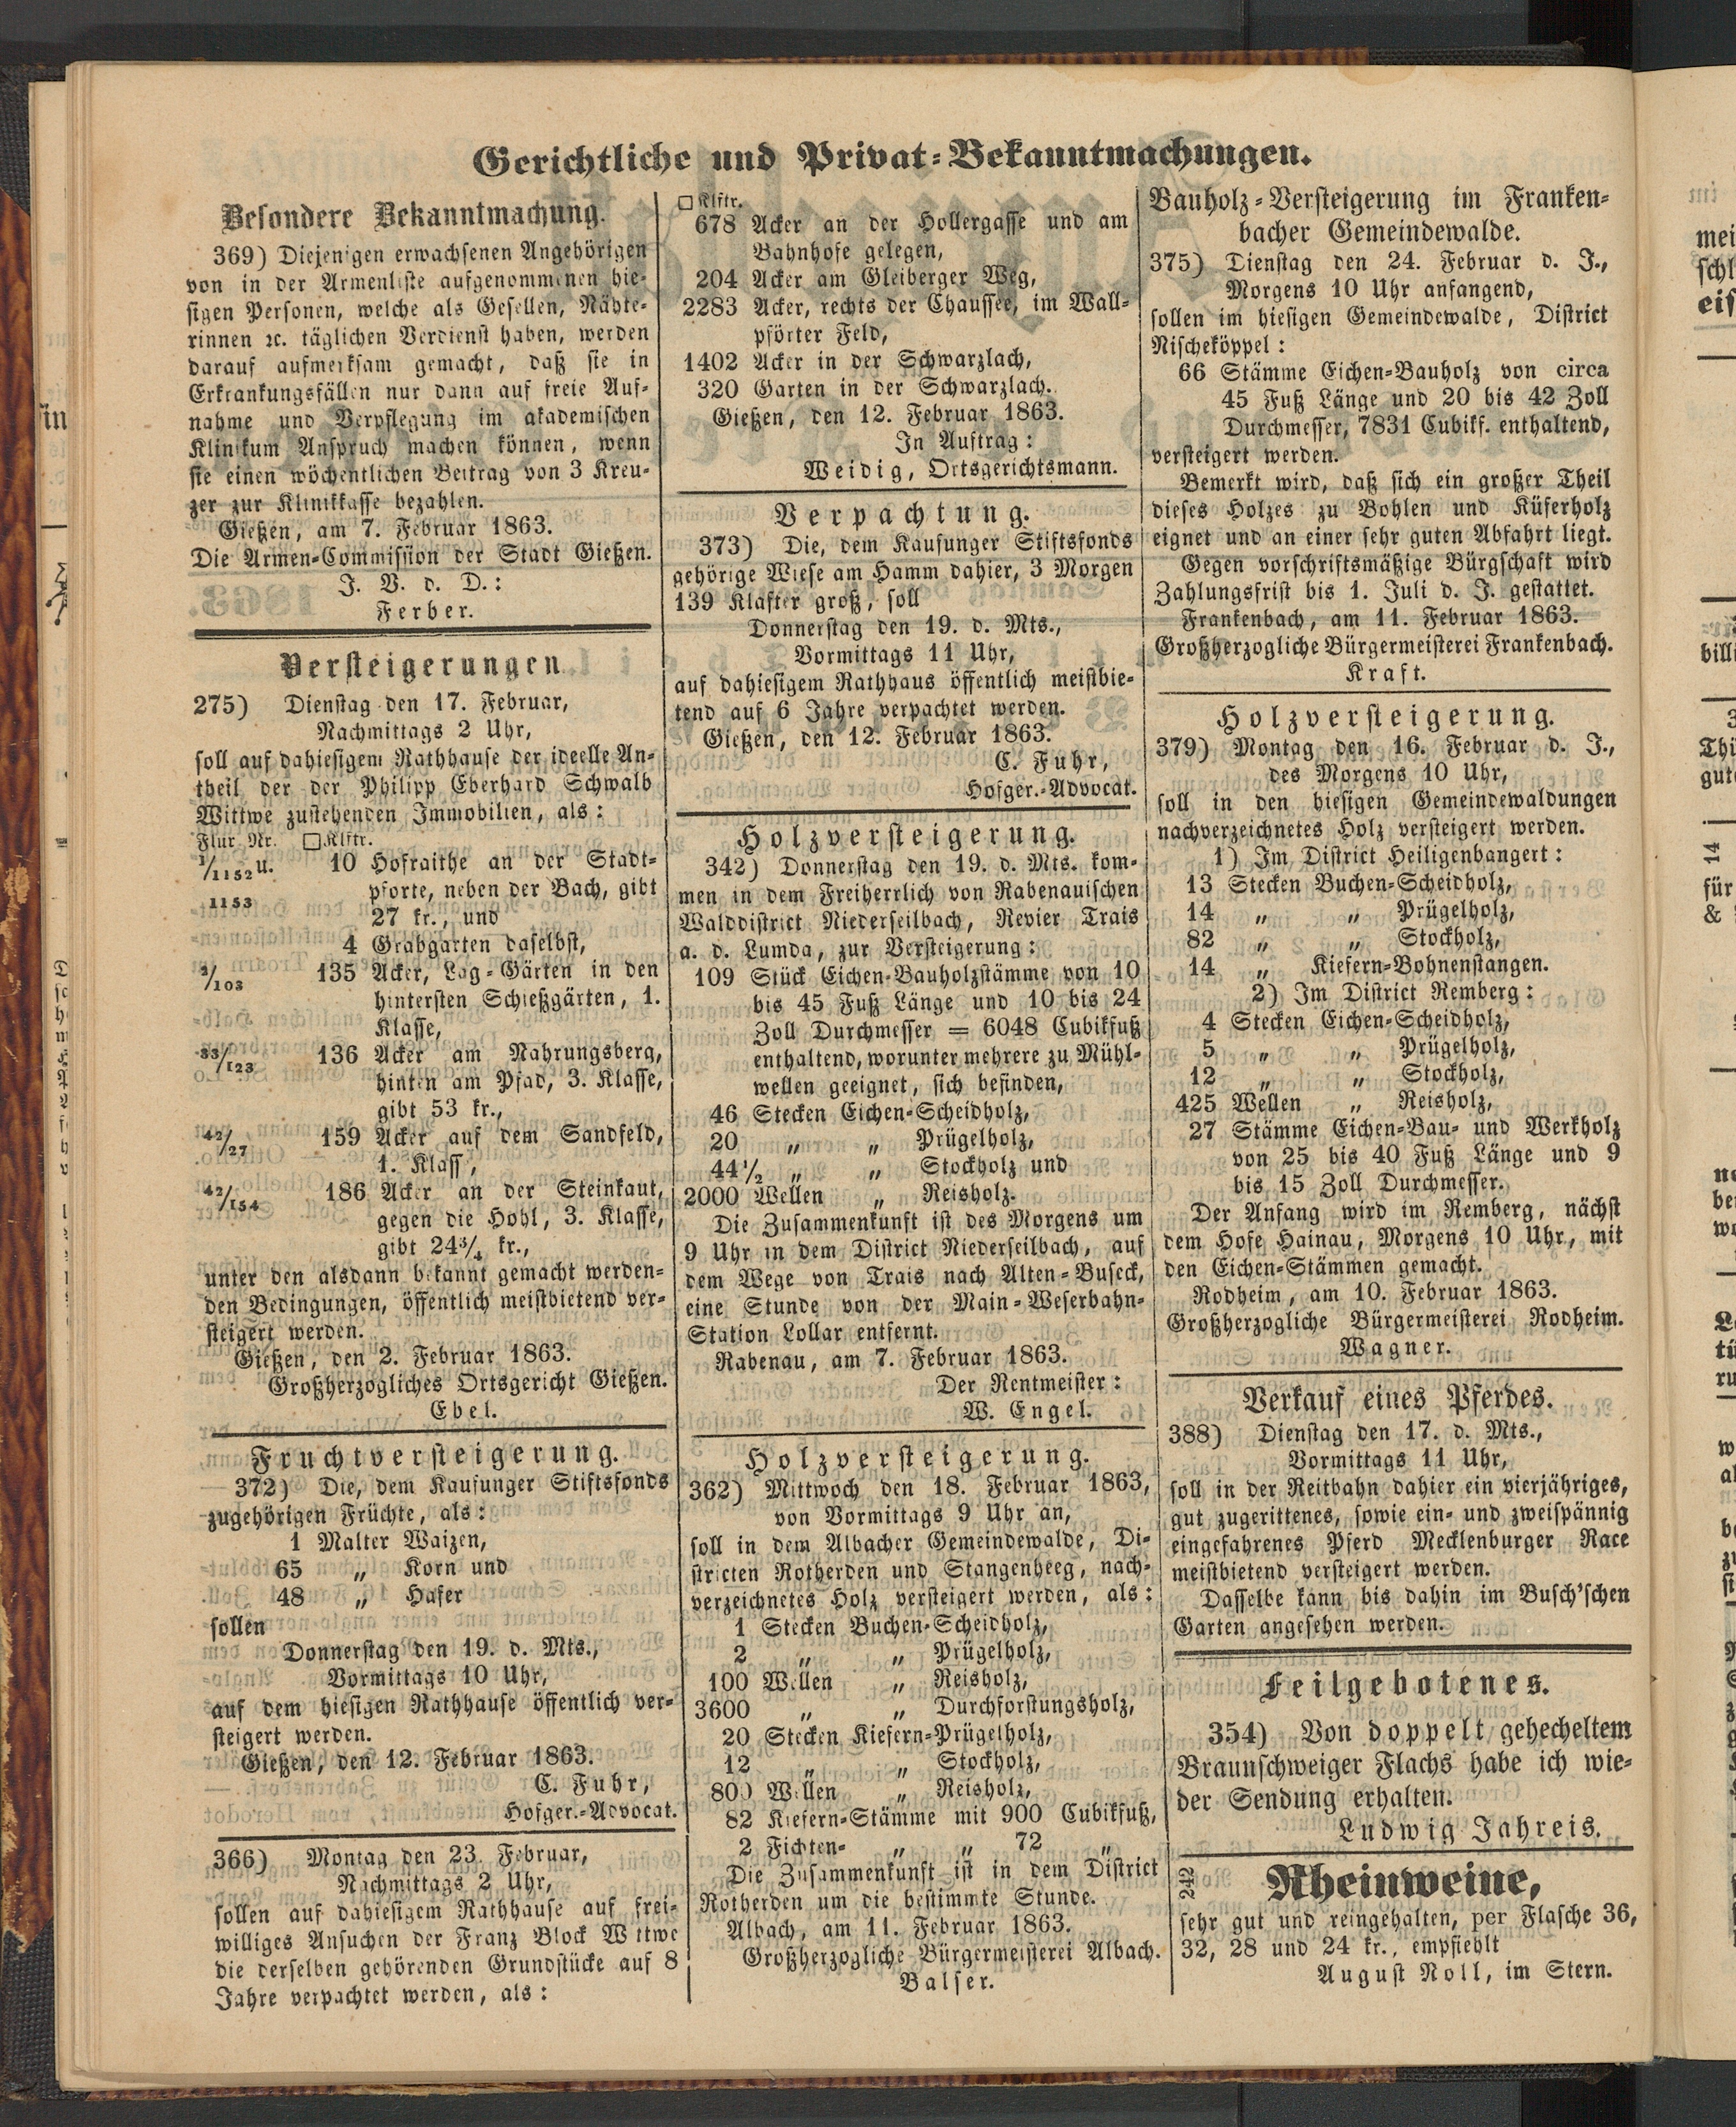 Gerichtliche und Privat-Bekanntmachungen.
Besondere Bekanntmachung.
369) Diejenigen erwachsenen Angehörigen
von in der Armenliste aufgenommenen hie-
sigen Personen, welche als Gesellen, Nähte-
rinnen ꝛc. täglichen Verdienst haben, werden
darauf aufmerksam gemacht, daß sie in
Erkrankungsfällen nur dann auf freie Auf-
nahme und Verpflegung im akademischen
Klinikum Anspruch machen können, wenn
sie einen wöchentlichen Beitrag von 3 Kreu-
zer zur Klinikkasse bezahlen.
Gießen, am 7. Februar 1863.
Die Armen-Commission der Stadt Gießen.
J. V. d. D.:
Ferber.
Versteigerungen
275) Dienstag den 17. Februar,
Nachmittags 2 Uhr,
soll auf dahiesigem Rathhause der ideelle An-
theil der der Philipp Eberhard Schwalb
Wittwe zustehenden Immobilien, als:
Flur Nr. □Klftr.
1/1152 u. 10 Hofraithe an der Stadt-
1153 pforte, neben der Bach, gibt
27 kr., und
4 Grabgarten daselbst,
2/103 135 Acker, Lag-Gärten in den
hintersten Schießgärten, 1.
Klasse,
33/123 136 Acker am Nahrungsberg,
hinten am Pfad, 3. Klasse,
gibt 53 kr.,
42/27 159 Acker auf dem Sandfeld,
1. Klass',
42/154 186 Acker an der Steinkaut,
gegen die Hohl, 3. Klasse,
gibt 24¾ kr.,
unter den alsdann bekannt gemacht werden-
den Bedingungen, öffentlich meistbietend ver-
steigert werden.
Gießen, den 2. Februar 1863.
Großherzogliches Ortsgericht Gießen.
Ebel.
Fruchtversteigerung.
372) Die, dem Kaufunger Stiftsfonds
zugehörigen Früchte, als:
1 Malter Waizen,
65 „ Korn und
48 „ Hafer
sollen
Donnerstag den 19. d. Mts.,
Vormittags 10 Uhr,
auf dem hiesigen Rathhause öffentlich ver-
steigert werden.
Gießen, den 12. Februar 1863.
C. Fuhr,
Hofger.-Advocat.
366) Montag den 23. Februar,
Nachmittags 2 Uhr,
sollen auf dahiesigem Rathhause auf frei-
williges Ansuchen der Franz Block Wittwe
die derselben gehörenden Grundstücke auf 8
Jahre verpachtet werden, als:
□Klftr.
678 Acker an der Hollergasse und am
Bahnhofe gelegen,
204 Acker am Gleiberger Weg,
2283 Acker, rechts der Chaussee, im Wall-
pförter Feld,
1402 Acker in der Schwarzlach,
320 Garten in der Schwarzlach.
Gießen, den 12. Februar 1863.
In Auftrag:
Weidig, Ortsgerichtsmann.
Verpachtung.
373) Die, dem Kaufunger Stiftsfonds
gehörige Wiese am Hamm dahier, 3 Morgen
139 Klafter groß, soll
Donnerstag den 19. d. Mts.,
Vormittags 11 Uhr,
auf dahiesigem Rathhaus öffentlich meistbie-
tend auf 6 Jahre verpachtet werden.
Gießen, den 12. Februar 1863.
C. Fuhr,
Hofger.-Advocat.
Holzversteigerung.
342) Donnerstag den 19. d. Mts. kom-
men in dem Freiherrlich von Rabenauischen
Walddistrict Niederseilbach, Revier Trais
a. d. Lumda, zur Versteigerung:
109 Stück Eichen-Bauholzstämme von 10
bis 45 Fuß Länge und 10 bis 24
Zoll Durchmesser = 6048 Cubikfuß
enthaltend, worunter mehrere zu Mühl-
wellen geeignet, sich befinden,
46 Stecken Eichen-Scheidholz,
20 „ „ Prügelholz,
44½ „ „ Stockholz und
2000 Wellen „ Reisholz.
Die Zusammenkunft ist des Morgens um
9 Uhr in dem District Niederseilbach, auf
dem Wege von Trais nach Alten-Buseck,
eine Stunde von der Main-Weserbahn-
Station Lollar entfernt.
Rabenau, am 7. Februar 1863.
Der Rentmeister:
W. Engel.
Holzversteigerung.
362) Mittwoch den 18. Februar 1863,
von Vormittags 9 Uhr an,
soll in dem Albacher Gemeindewalde, Di-
stricten Rotherden und Stangenheeg, nach-
verzeichnetes Holz versteigert werden, als:
1 Stecken Buchen-Scheidholz,
2 „ „ Prügelholz,
100 Wellen „ Reisholz,
3600 „ „ Durchforstungsholz,
20 Stecken Kiefern-Prügelholz,
12 „ „ Stockholz,
800 Wellen „ Reisholz,
82 Kiefern-Stämme mit 900 Cubikfuß,
2 Fichten- „ „ 72 „
Die Zusammenkunft ist in dem District
Rotherden um die bestimmte Stunde.
Albach, am 11. Februar 1863.
Großherzogliche Bürgermeisterei Albach.
Balser.
Bauholz-Versteigerung im Franken-
bacher Gemeindewalde.
375) Dienstag den 24. Februar d. J.,
Morgens 10 Uhr anfangend,
sollen im hiesigen Gemeindewalde, District
Nischeköppel:
66 Stämme Eichen-Bauholz von circa
45 Fuß Länge und 20 bis 42 Zoll
Durchmesser, 7831 Cubikf. enthaltend,
versteigert werden.
Bemerkt wird, daß sich ein großer Theil
dieses Holzes zu Bohlen und Küferholz
eignet und an einer sehr guten Abfahrt liegt.
Gegen vorschriftsmäßige Bürgschaft wird
Zahlungsfrist bis 1. Juli d. J. gestattet.
Frankenbach, am 11. Februar 1863.
Großherzogliche Bürgermeisterei Frankenbach.
Kraft.
Holzversteigerung.
379) Montag den 16. Februar d. J.,
des Morgens 10 Uhr,
soll in den hiesigen Gemeindewaldungen
nachverzeichnetes Holz versteigert werden.
1) Im District Heiligenbangert:
13 Stecken Buchen-Scheidholz,
14 „ „ Prügelholz,
82 „ „ Stockholz,
14 „ Kiefern-Bohnenstangen.
2) Im District Remberg:
4 Stecken Eichen-Scheidholz,
5 „ „ Prügelholz,
12 „ „ Stockholz,
425 Wellen „ Reisholz,
27 Stämme Eichen-Bau- und Werkholz
von 25 bis 40 Fuß Länge und 9
bis 15 Zoll Durchmesser.
Der Anfang wird im Remberg, nächst
dem Hofe Hainau, Morgens 10 Uhr, mit
den Eichen-Stämmen gemacht.
Rodheim, am 10. Februar 1863.
Großherzogliche Bürgermeisterei Rodheim.
Wagner.
Verkauf eines Pferdes.
388) Dienstag den 17. d. Mts.,
Vormittags 11 Uhr,
soll in der Reitbahn dahier ein vierjähriges,
gut zugerittenes, sowie ein- und zweispännig
eingefahrenes Pferd Mecklenburger Race
meistbietend versteigert werden.
Dasselbe kann bis dahin im Busch'schen
Garten angesehen werden.
Feilgebotenes.
354) Von doppelt gehecheltem
Braunschweiger Flachs habe ich wie-
der Sendung erhalten.
Ludwig Jahreis.
242 Rheinweine,
sehr gut und reingehalten, per Flasche 36,
32, 28 und 24 kr., empfiehlt
August Noll, im Stern.